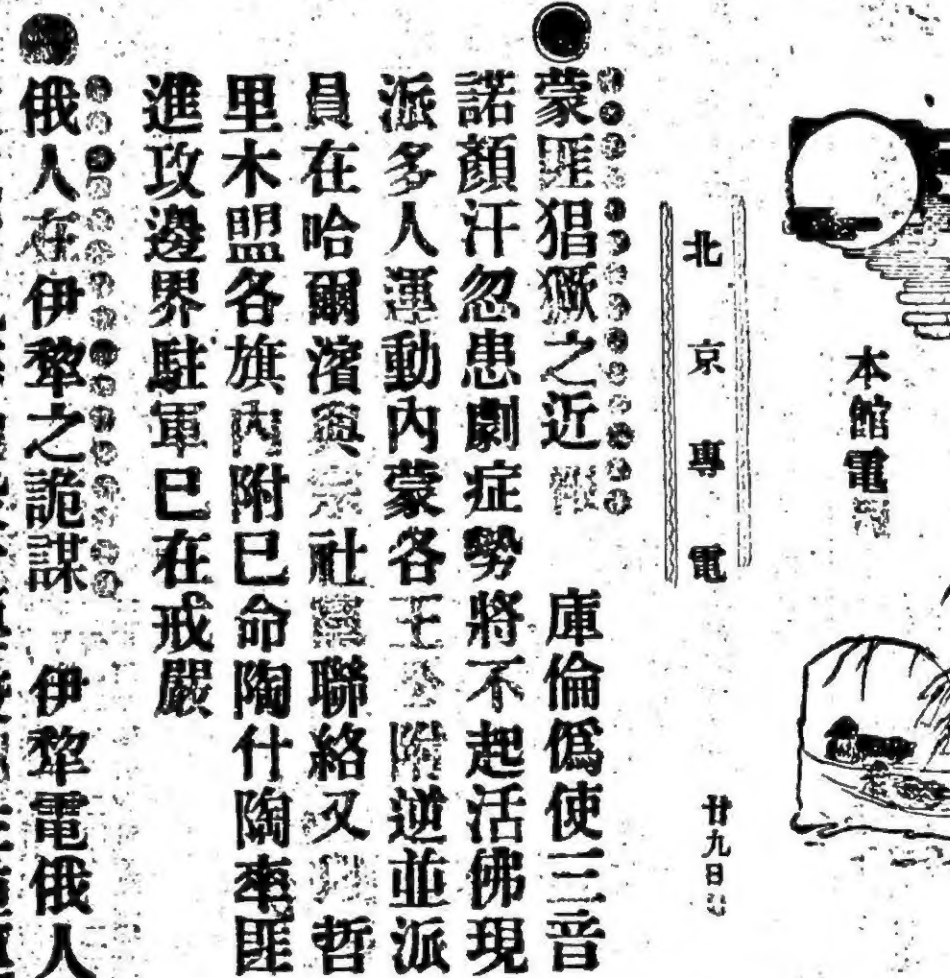 本館電
北京專電
廿九日
蒙匪猖獗之近 庫倫偽使三音
諾顏汗忽患劇症勢將不起活佛現
派多人運動內蒙各王公附逆並派
員在哈爾濱與宗社黨聯絡又 哲
里木盟各旗內附已命陶什陶率匪
進攻邊界駐軍已在戒嚴
俄人在伊犂之詭謀 伊犂電俄人